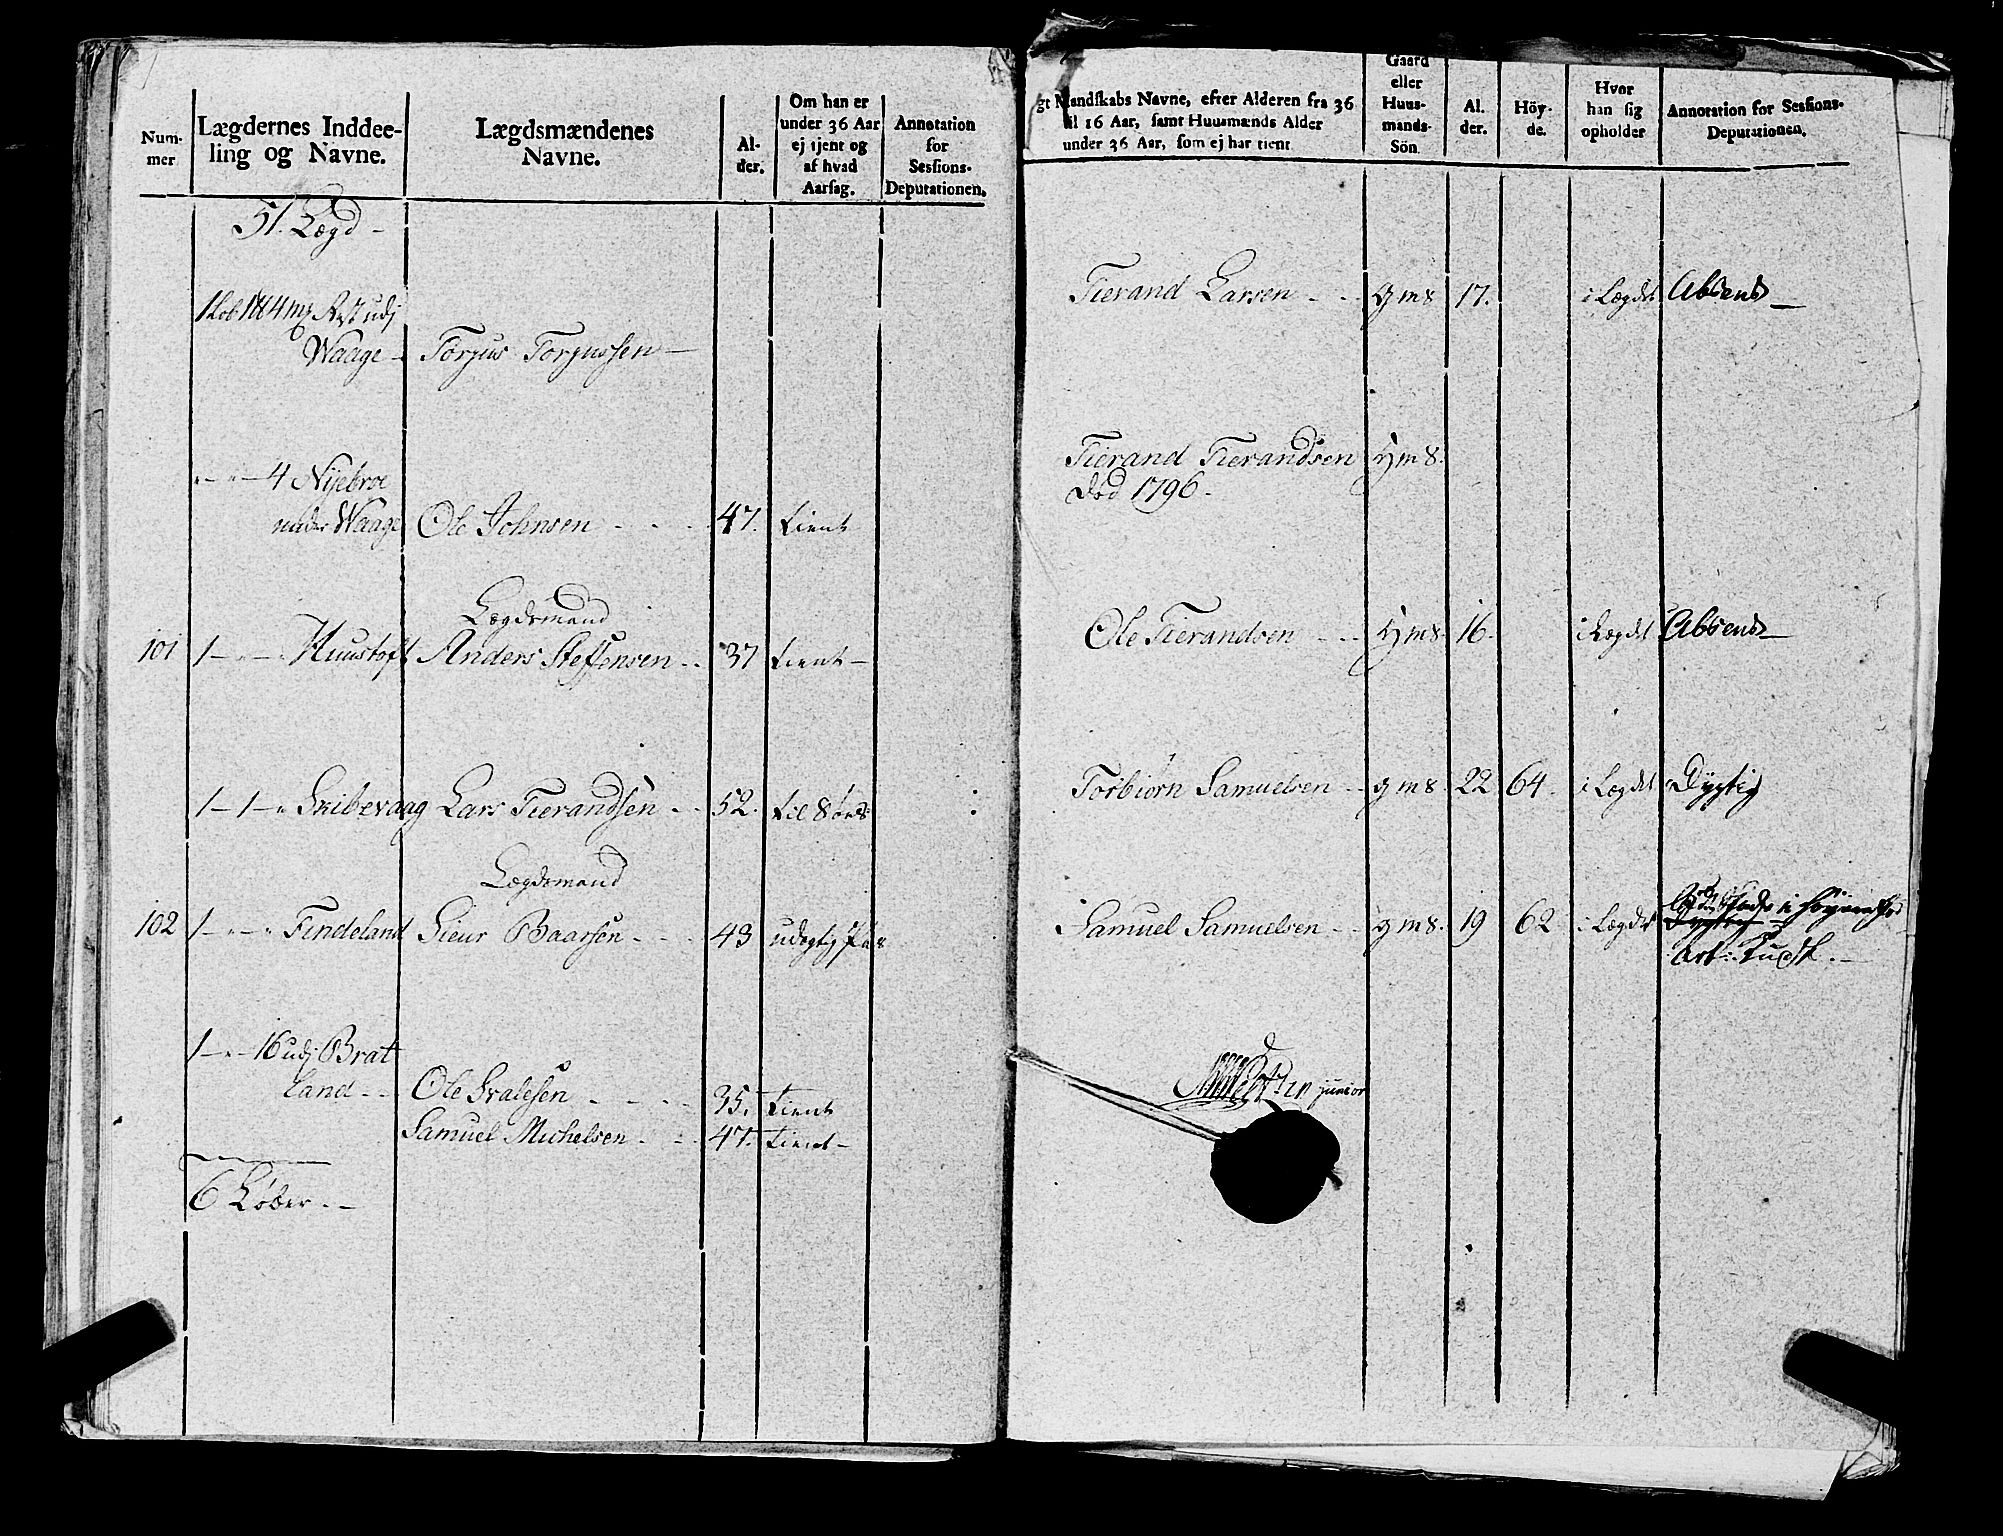 Num-
mer
Lægdernes Inddee-
ling og Navne.
Lægdsmændenes
Navne.
Al-
der.
Om han er
under 36 Aar
ej tjent og
af hvad
Aarsag.
Annotation
for
Sessions-
Deputationen.
51. Lægd -
Waage - Torjus Torjussen -
4 Nyebroe
under Waage Ole Johnsen - - - 47. tient
Lægdsmand
101 1 - " - " Huustoft Anders Steffensen - - 37 tient -
1 - 1 - " Skibevaag Lars Tierandsen - - 52.
Lægdsmand
102 1 - " - " Findeland Sieur Baarsen - - - 43
1 - " - 16 udj Brat
land - - Ole Svalesen - - - - 35. tient
Samuel Michelsen - - - 47. tient -
6 Løber. -
gt Mandskabs Navne, efter Alderen fra 36
til 16 Aar, samt Huusmænds Alder
under 36 Aar, som ej har tient
Gaard
eller
Huus-
mands-
Sön
Al.
der.
Höy-
de.
Hvor
han sig
opholder
Annotation for Sessions-
Deputationen.
Tierand Larsen - - - g m s 17. i Lægdet Absent -
Tierand Tierandsen g m s.
død 1796.
Ole Tierandsen - - - g m s. 16. i Lægdet Absent -
Torbiørn Samuelsen - - g m s. 22 64. i Lægdet Dygtig
Samuel Samuelsen - - g m s. 19 62 i Lægdet
junior